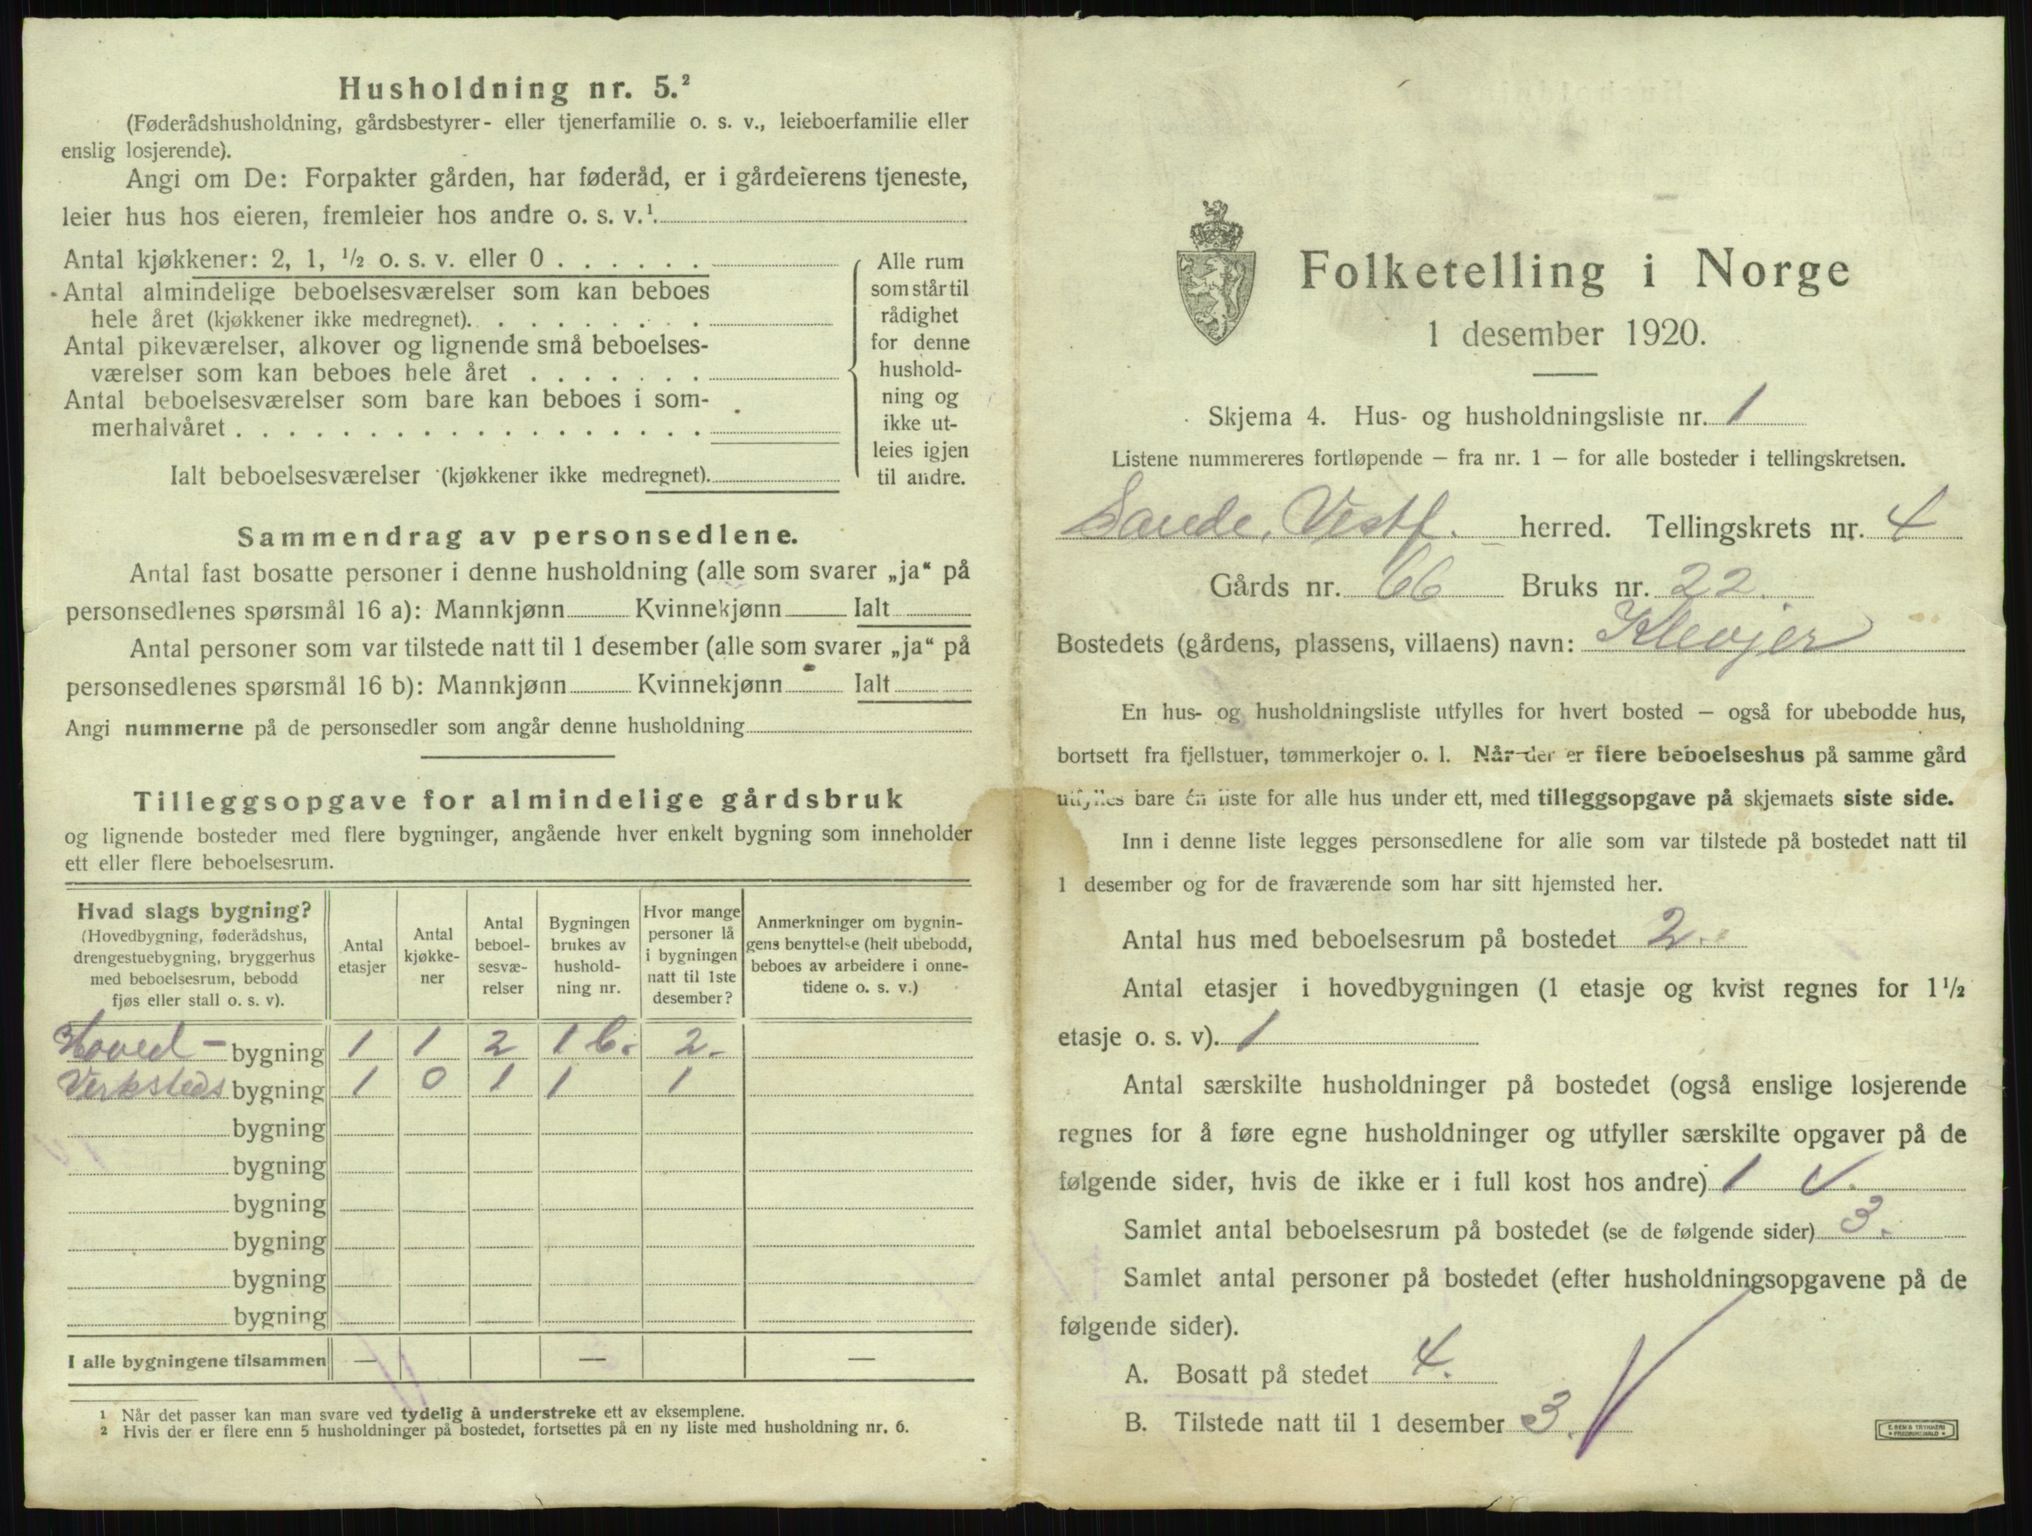 Husholdning nr. 5.²
(Føderådshusholdning, gårdsbestyrer- eller tjenerfamilie o. s. v., leieboerfamilie eller
enslig losjerende).
Angi om De: Forpakter gården, har føderåd, er i gårdeierens tjeneste,
leier hus hos eieren, fremleier hos andre o. s. v.¹
Antal kjøkkener: 2, 1, ½ o. s. v. eller 0
Antal almindelige beboelsesværelser som kan beboes
hele året (kjøkkener ikke medregnet).
Antal pikeværelser, alkover og lignende små beboelses-
værelser som kan beboes hele året
Antal beboelsesværelser som bare kan beboes i som-
merhalvåret
Ialt beboelsesværelser (kjøkkener ikke medregnet).
Alle rum
som står til
rådighet
for denne
hushold-
ning og
ikke ut-
leies igjen
til andre.
Sammendrag av personsedlene.
Antal fast bosatte personer i denne husholdning (alle som svarer „ja“ på
personsedlenes spørsmål 16 a): Mannkjønn Kvinnekjønn Ialt
Antal personer som var tilstede natt til 1 desember (alle som svarer „ja“ på
personsedlenes spørsmål 16 b): Mannkjønn Kvinnekjønn Ialt
Angi nummerne på de personsedler som angår denne husholdning
Tilleggsopgave for almindelige gårdsbruk
og lignende bosteder med flere bygninger, angående hver enkelt bygning som inneholder
ett eller flere beboelsesrum.
Hvad slags bygning?
(Hovedbygning, føderådshus,
drengestuebygning, bryggerhus
med beboelsesrum, bebodd
fjøs eller stall o. s. v).
Antal
etasjer
Antal
kjøkke-
ner
Antal
beboel-
sesvæ-
relser
Bygningen
brukes av
hushold-
ning nr.
Hvor mange
personer lå
i bygningen
natt til 1ste
desember?
Anmerkninger om bygnin-
gens benyttelse (helt ubebodd,
beboes av arbeidere i onne-
tidene o. s. v.)
Hoved- bygning 1 1 2 1 b. 2.
Verksteds bygning 1 0 1 1 1
bygning
bygning
bygning
bygning
bygning
bygning
I alle bygningene tilsammen — — —
¹ Når det passer kan man svare ved tydelig å understreke ett av eksemplene.
² Hvis der er flere enn 5 husholdninger på bostedet, fortsettes på en ny liste med husholdning nr. 6.
Folketelling i Norge
1 desember 1920.
Skjema 4. Hus- og husholdningsliste nr. 1
Listene nummereres fortløpende – fra nr. 1 – for alle bosteder i tellingskretsen.
Sande, Vestf. herred. Tellingskrets nr. 4
Gårds nr. 66 Bruks nr. 22.
Bostedets (gårdens, plassens, villaens) navn: Klevjer
En hus- og husholdningsliste utfylles for hvert bosted – også for ubebodde hus,
bortsett fra fjellstuer, tømmerkojer o. l. Når der er flere beboelseshus på samme gård
utfylles bare én liste for alle hus under ett, med tilleggsopgave på skjemaets siste side.
Inn i denne liste legges personsedlene for alle som var tilstede på bostedet natt til
1 desember og for de fraværende som har sitt hjemsted her.
Antal hus med beboelsesrum på bostedet 2.
Antal etasjer i hovedbygningen (1 etasje og kvist regnes for 1½
etasje o. s. v). 1
Antal særskilte husholdninger på bostedet (også enslige losjerende
regnes for å føre egne husholdninger og utfyller særskilte opgaver på de
følgende sider, hvis de ikke er i full kost hos andre) 1
Samlet antal beboelsesrum på bostedet (se de følgende sider) 3.
Samlet antal personer på bostedet (efter husholdningsopgavene på de
følgende sider).
A. Bosatt på stedet 4.
B. Tilstede natt til 1 desember 3.